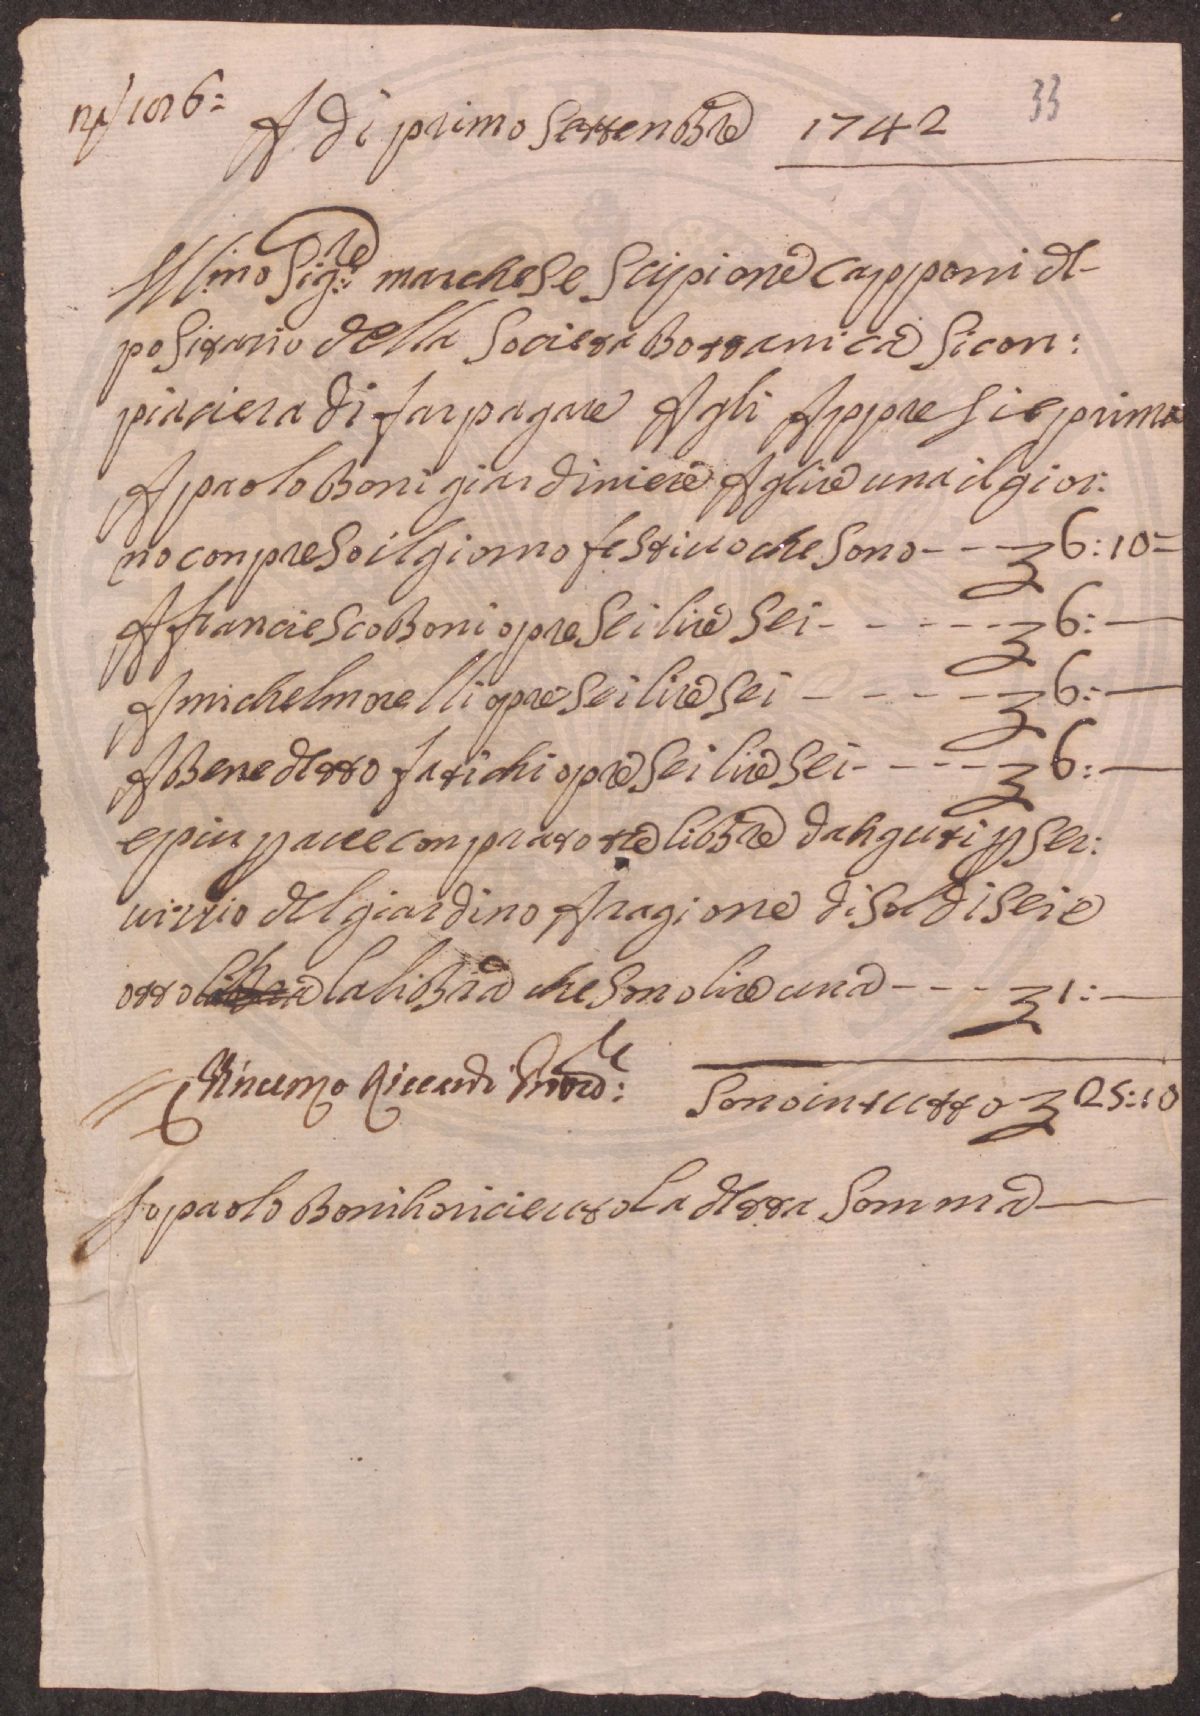 33
A di primo Settenbre 1742
Ill.mo Sig:re marchese Scipione Capponi de-
positario della Societa Bottanica Si con:
piaciera di far pagare Agli Appresi e prima
A paolo Boni giardiniere A lire una il gior:
no conpreso il giorno festiuo che Sono - - - 6:10=
A franciesco Boni opre Sei lire Sei - - - - - - 6:—
A michel morelli opre Sei lire Sei - - - - 6:—
A Benedetto fatichi opre Sei lire Sei - - - - - 6:—
e piu p auer conprato tre libbre dahguti p Ser:
uizzio del giardino A ragione di Soldi Sei e
otto la libra che Sono lire una - - - 1:—
Vincenzo Riccardi Prov.re:
Sono in tutto 25:10
Io paolo Boni ho riceuuto la detta Somma —